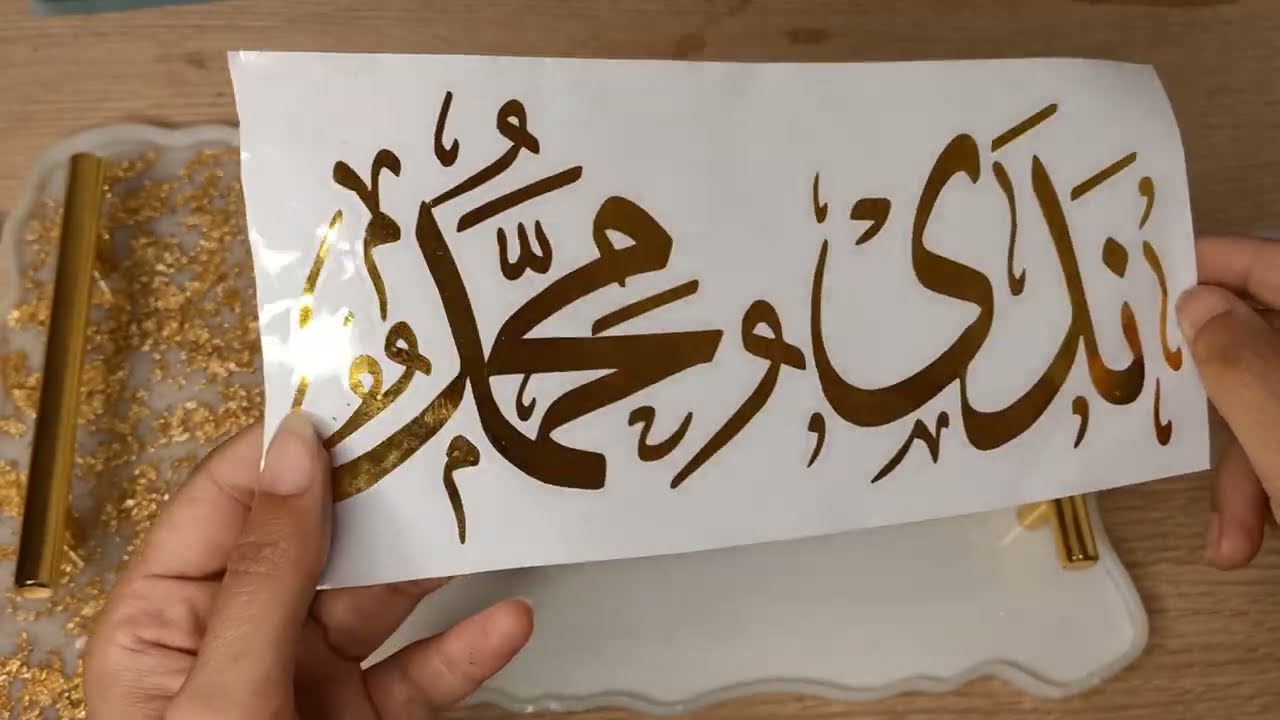 نَدَى و مُحَمَّدٌ